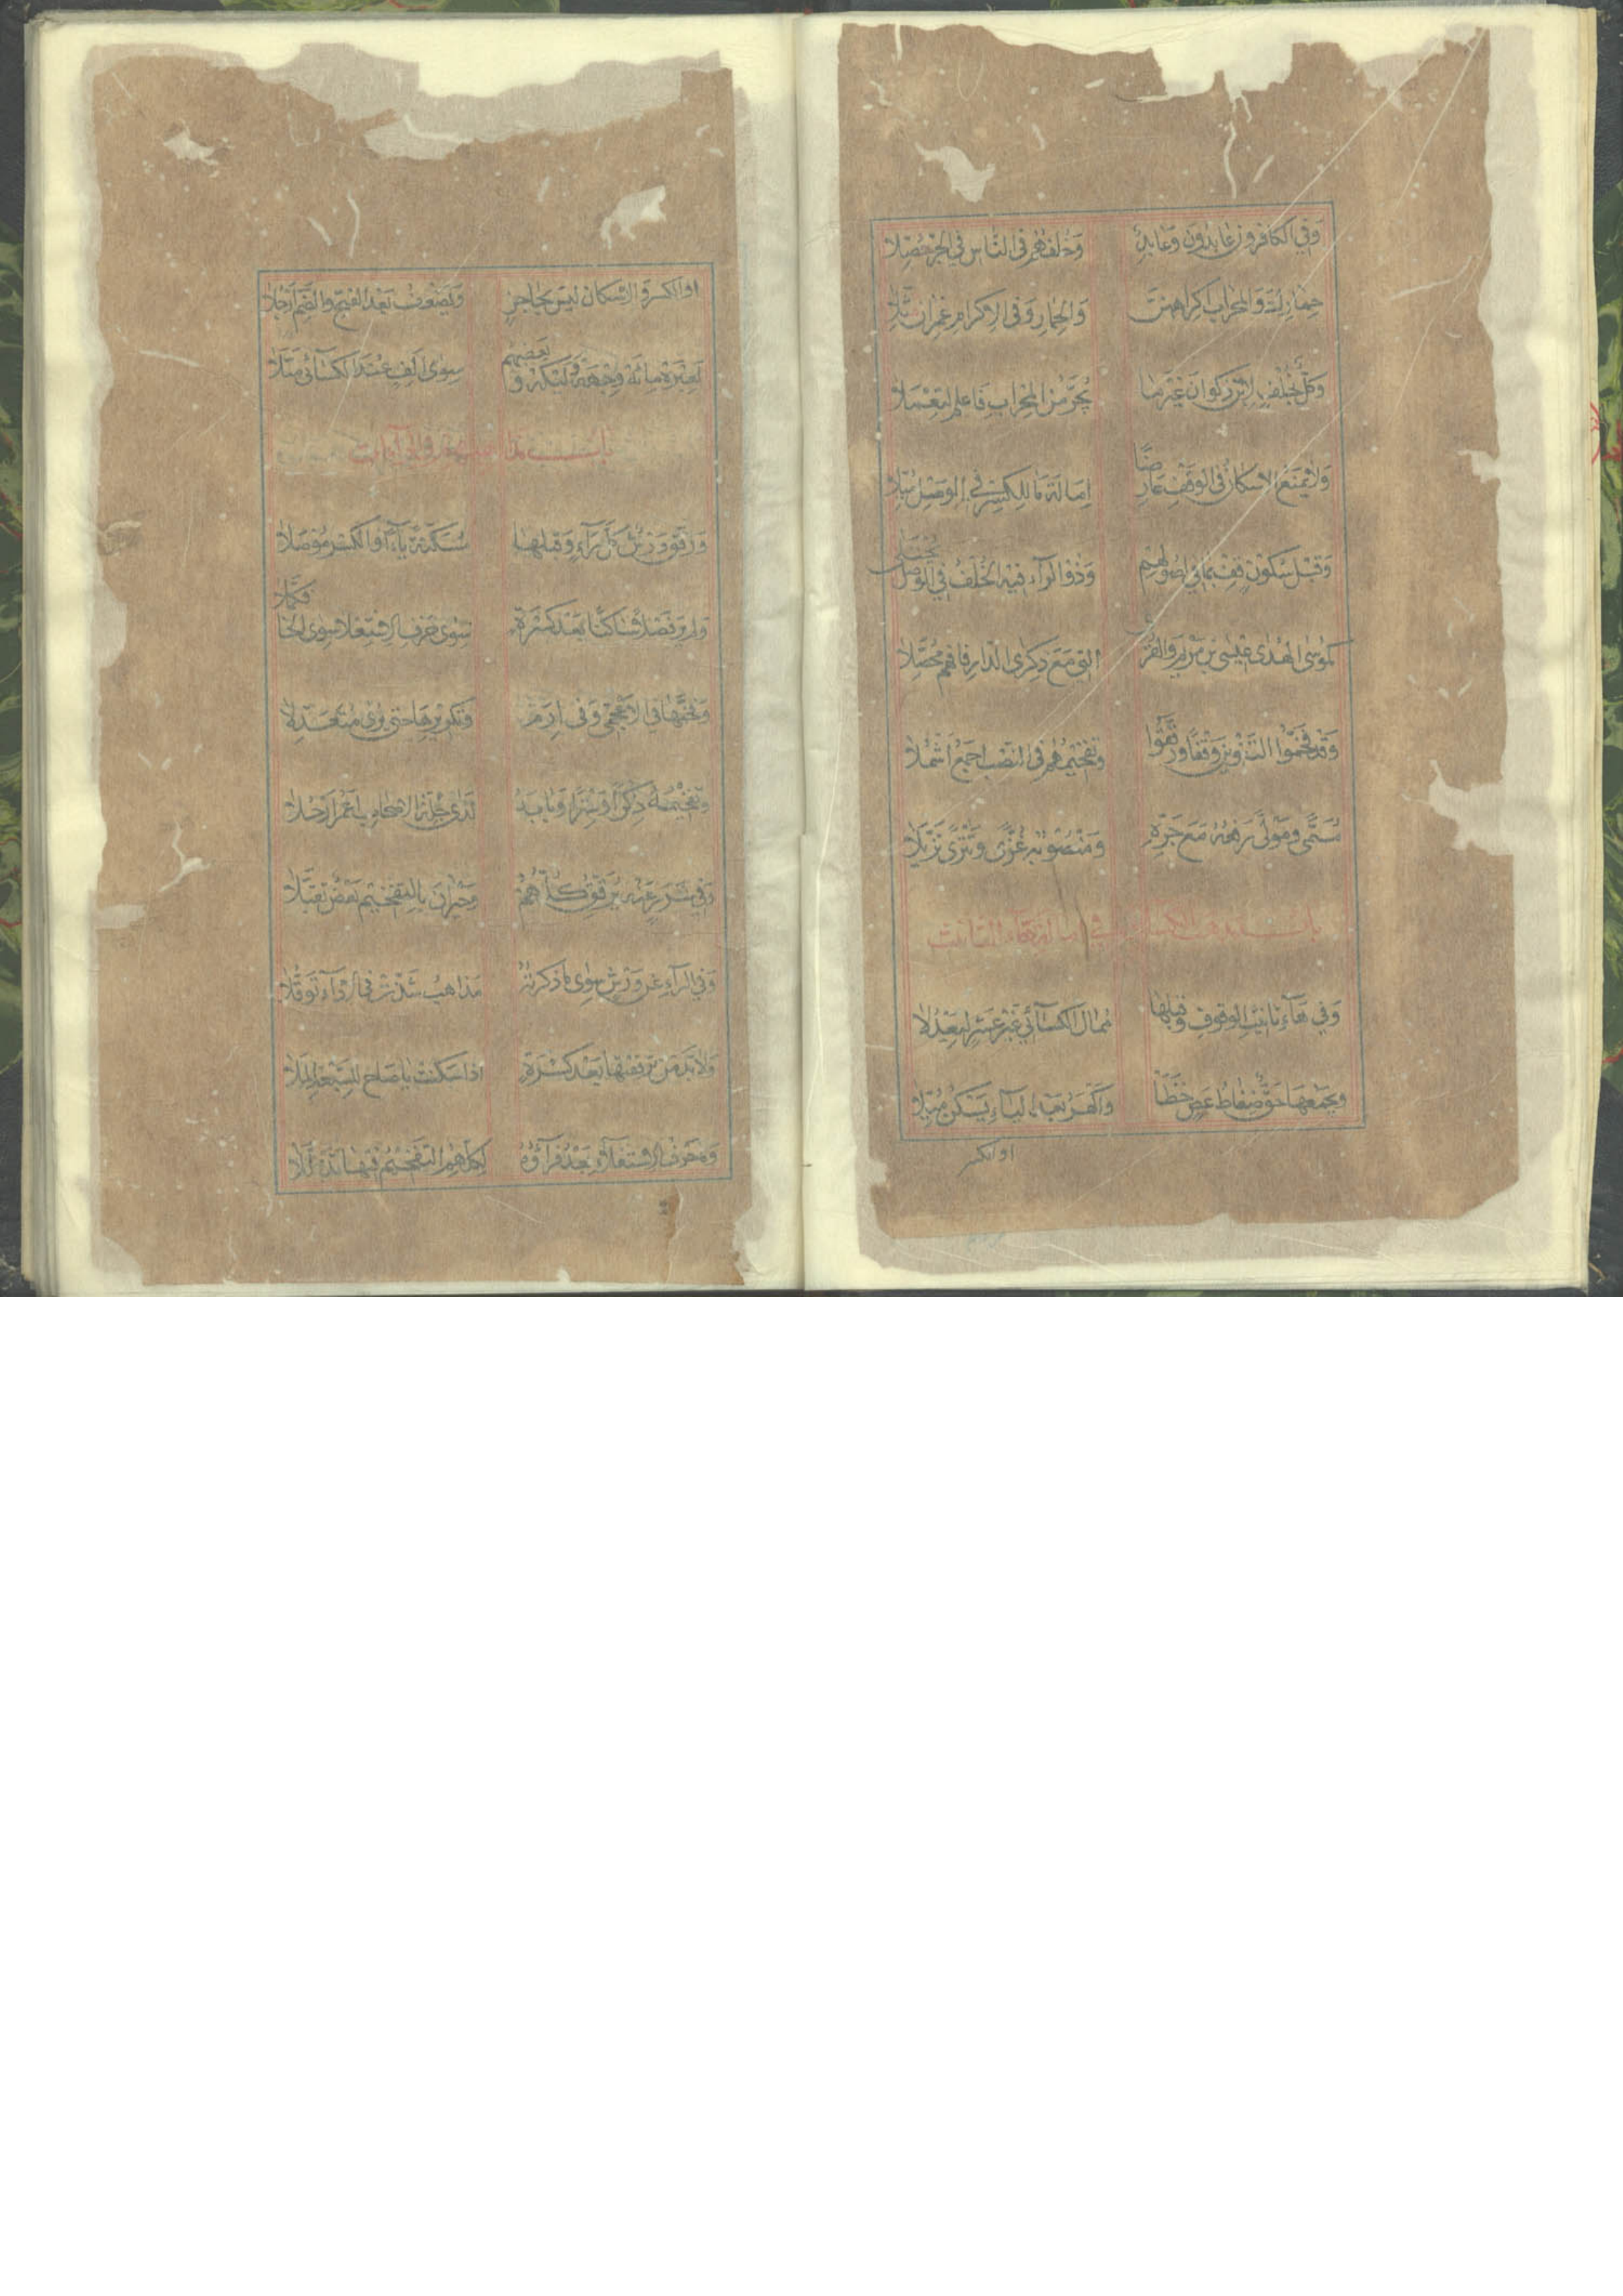 وَفِي الْكَافِرُونَ عَابِدُونَ وَعَابِدٌ وَخُلْفُهُمْ فِي النَّاسِ فِي الْجَرِّ حُصِّلَا
حِمَارِكَ وَالْمِحْرَابِ إِكْرَاهِهِنَّ وَالْحِمَارِ وَفِي الْإِكْرَامِ عِمْرَانَ مُثِّلَا
وَكُلٌّ بِخُلْفٍ لِابْنِ ذَكْوَانَ غَيْرَ مَا يُجَرُّ مِنَ الْمِحْرَابِ فَاعْلَمْ لِتَعْمَلَا
وَلَا يَمْنَعُ الْإِسْكَانُ فِي الْوَقْفِ عَارِضًا إِمَالَةَ مَا لِلْكَسْرِ فِي الْوَصْلِ مُيِّلَا
وَقَبْلَ سُكُونٍ قِفْ بِمَا فِي أُصُولِهِمْ وَذُو الرَّاءِ فِيهِ الْخُلْفُ فِي الْوَصْلِ يُجْتَلَى
كَمُوسَى الْهُدَى عِيسَى بْنِ مَرْيَمَ وَالْقُرَ الَّتِي مَعَ ذِكْرَى الدَّارِ فَافْهَمْ مُحَصِّلَا
وَقَدْ فَخَّمُوا التَّنْوِينَ وَقْفًا وَرَقَّقُوا وَتَفْخِيمُهُمْ فِي النَّصْبِ أَجْمَعُ أَشْمُلَا
مُسَمًّى وَمَوْلًى رَفْعُهُ مَعَ جَرِّهِ وَمَنْصُوبُهُ غُزًّى وَتَتْرًى تَزَيَّلَا
باب مذهب الكسائي في امالة هاء التانيث
وَفِي هَاءِ تَأْنِيثِ الْوُقُوفِ وَقَبْلَهَا مُمَالُ الْكِسَائِيِّ غَيْرَ عَشْرٍ لِيَعْدِلَا
وَيَجْمَعُهَا حَقٌّ ضِغَاطُ عَصٍ خَظَا وَأَكْهَرُ بَعْدَ الْيَاءِ يَسْكُنُ مُيِّلَا
او الكسر
اَوِ الْكَسْرِ وَالْإِسْكَانُ لَيْسَ بِحَاجِزٍ وَيَضْعُفُ بَعْدَ الْفَتْحِ وَالضَّمِّ أَرْجُلَا
لَعِبْرَةْ مِائَهْ وِجْهَهْ وَلَيْكَهْ وَبَعْضُهُمْ سِوَى أَلِفٍ عِنْدَ الْكِسَائِيِّ مَيَّلَا
باب مذاهبهم في الراآت
وَرَقَّقَ وَرْشٌ كُلَّ رَاءٍ وَقَبْلَهَا مُسَكَّنَةً يَاءٌ أَوِ الْكَسْرُ مُوصَلَا
وَلَمْ يَرَ فَصْلًا سَاكِنًا بَعْدَ كَسْرَةٍ سِوَى حَرْفِ الِاسْتِعْلَا سِوَى الْخَا فَكَمَّلَا
وَفَخَّمَهَا فِي الْأَعْجَمِيِّ وَفِي إِرَمْ وَتَكْرِيرِهَا حَتَّى يُرَى مُتَعَدِّلَا
وَتَفْخِيمُهُ ذِكْرًا وَسِتْرًا وَبَابَهُ لَدَى جِلَّةِ الْأَصْحَابِ أَعْمَرُ أَرْحُلَا
وَفِي شَرَرٍ عَنْهُ يُرَقِّقُ كُلُّهُمْ وَحَيْرَانَ بِالتَّفْخِيمِ بَعْضٌ تَقَبَّلَا
وَفِي الرَّاءِ عَنْ وَرْشٍ سِوَى مَا ذَكَرْتُهُ مَذَاهِبُ شَذَّتْ فِي الْأَدَاءِ تَوَقُّلَا
وَلَا بُدَّ مِنْ تَرْقِيقِهَا بَعْدَ كَسْرَةٍ إِذَا سَكَنَتْ يَا صَاحِ لِلسَّبْعَةِ الْمَلَا
وَمَا حَرْفُ الِاسْتِعْلَاءِ بَعْدُ فَرَاؤُهُ لِكُلِّهِمُ التَّفْخِيمُ فِيهَا تَذَلَّلَا